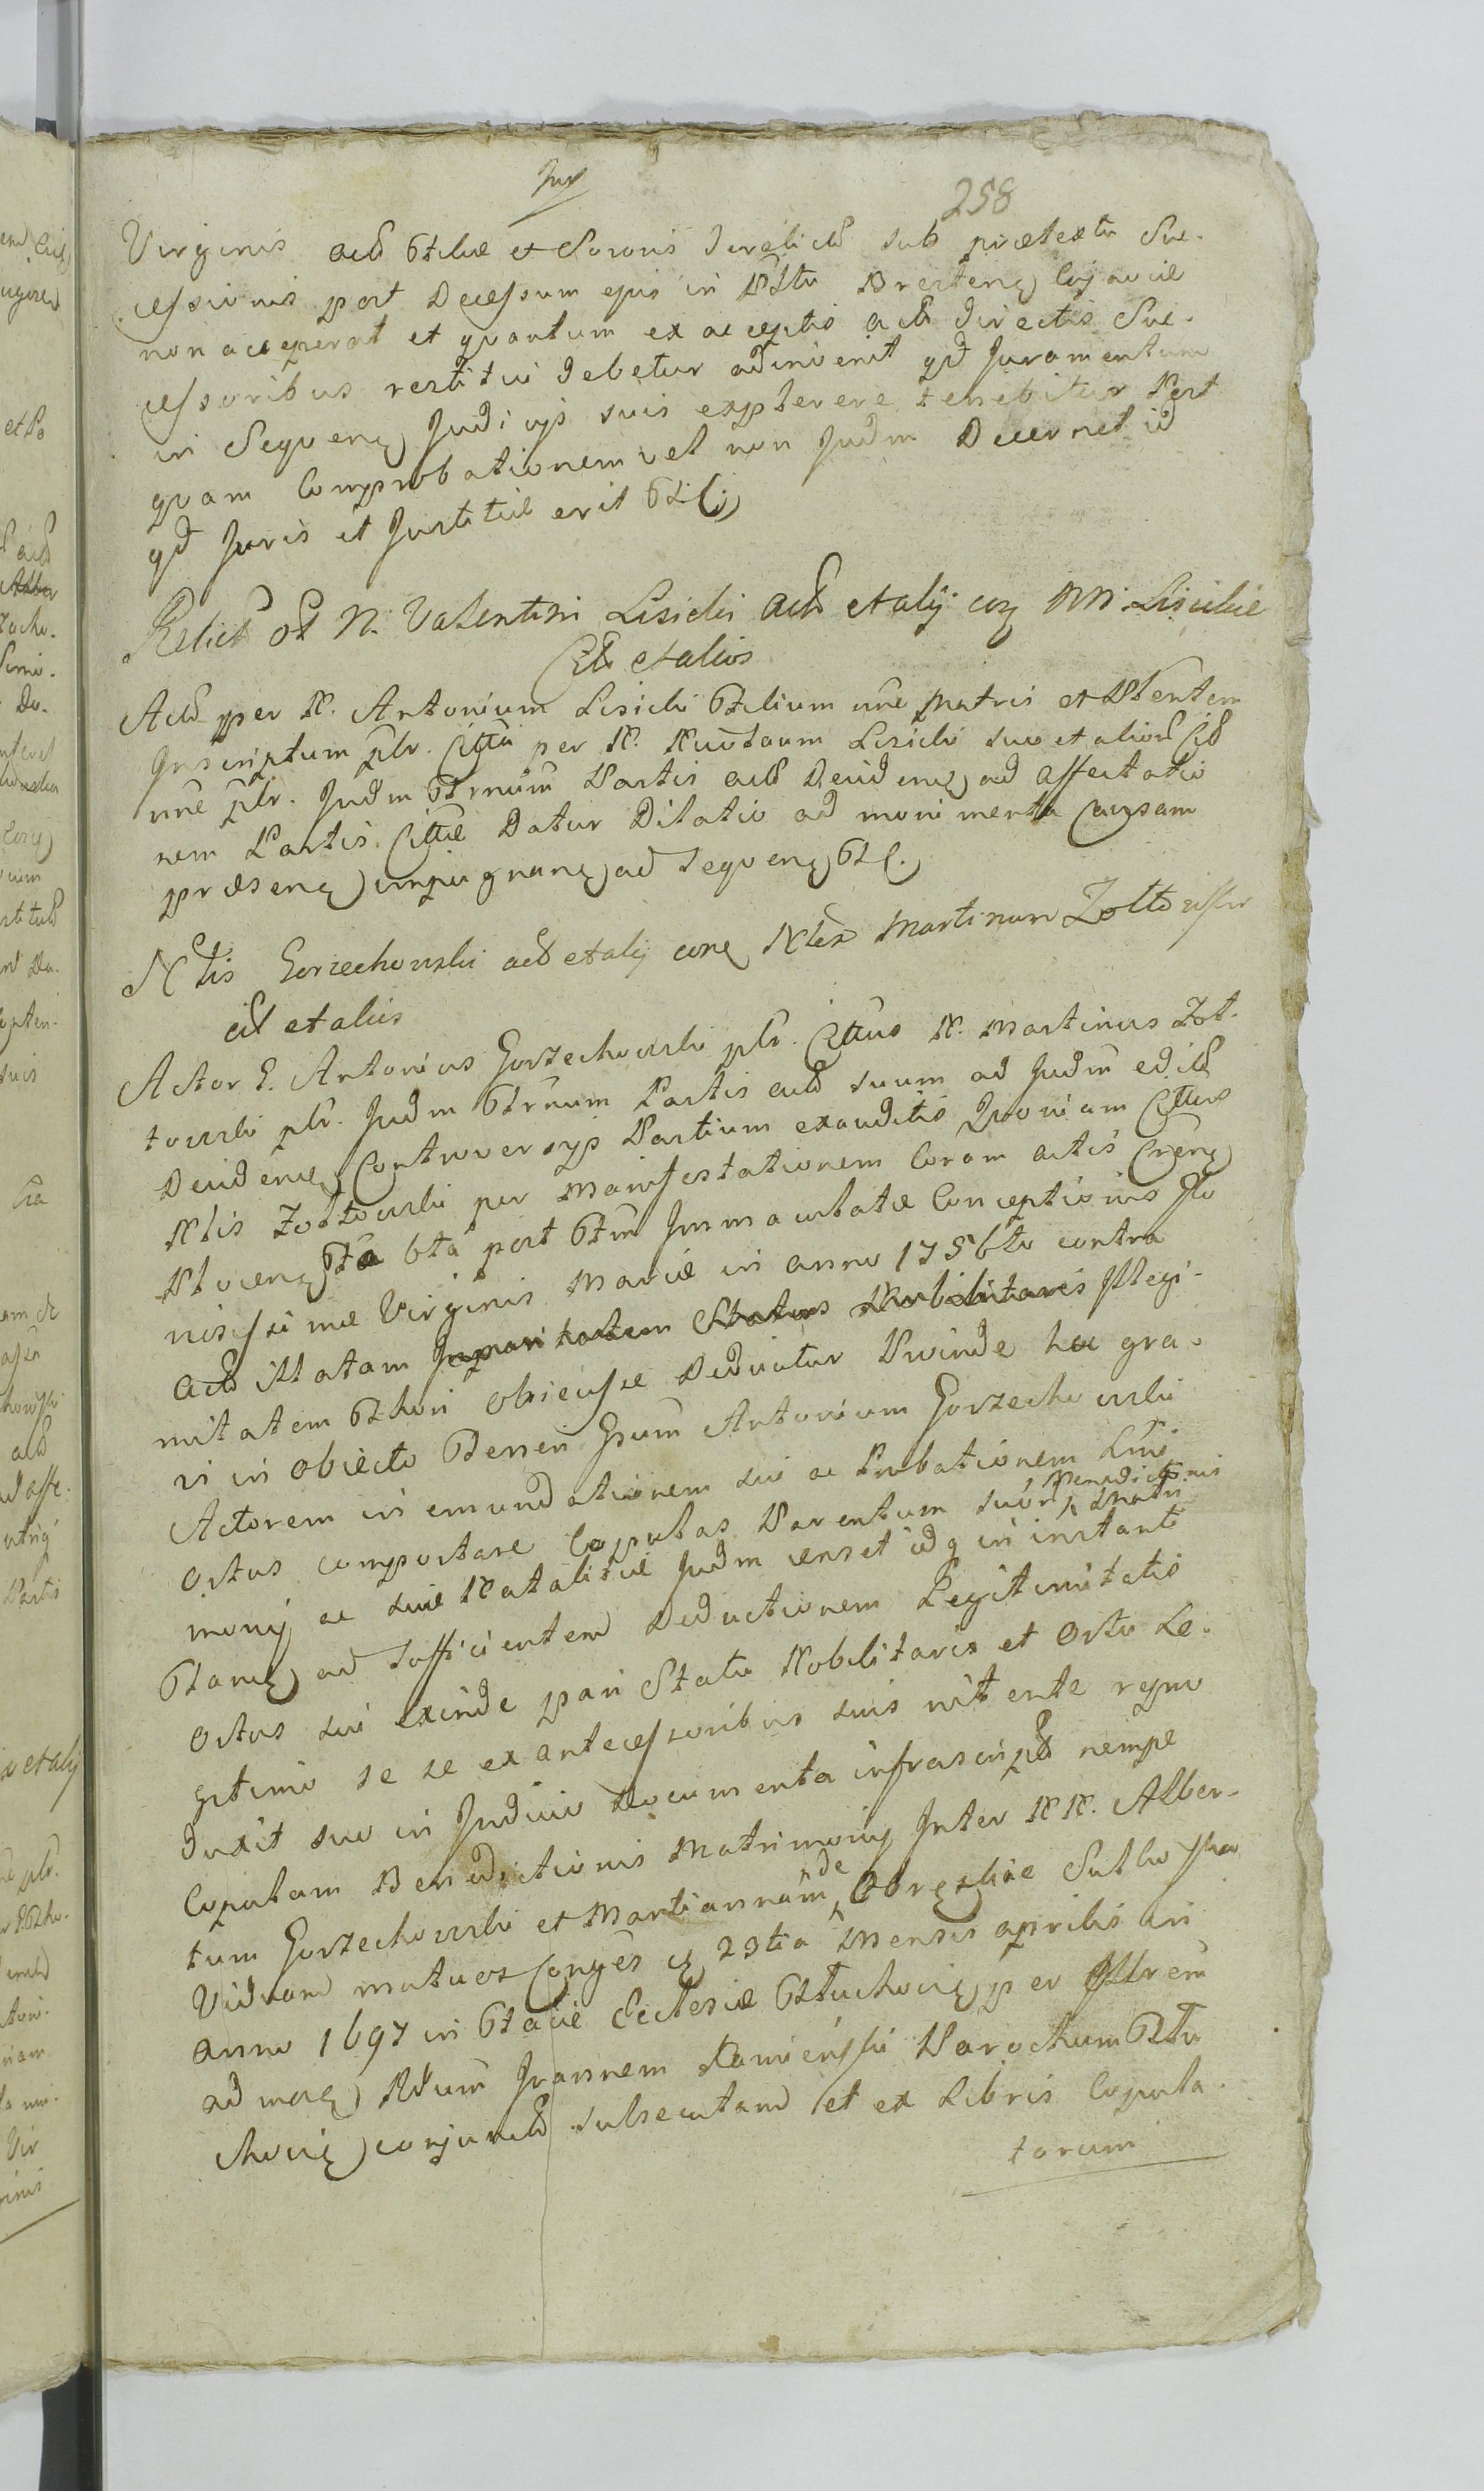 258
Virginis actr filiæ et Sororis derelictæ sub prætextu Suc-
cessionis post Decessum ejus in Dstu Bresten Cujaviæ
non acceperat et quantum ex acceptis actr directis Suc-
cessoribus restitui debetur adinvenit qd Juramentum
in Sequen Judicijs suis explerere tenebitur Post
quam Comprobationem vel non Judm Decernet id
qd Juris et Justitiæ erit
Relict N. Valentini Lisicki actr et alij con NN. Lisickie
Citt et alios
Actr per N. Antonium Lisicki filium nne Matris et Ptentem
Inscriptum plr. Citta per N. Lisicki suo et alior Citt
nne plr. Judm Prnum Partis actr Deciden ad affectatio
nem Partis Cittæ Datur Dilatio ad monimenta Causam
præsen impugnan ad Sequen
Nlis Gorzechowski actr et alij con Nlem Martinum Zoltowski
citt et alios
Actor G. Antonius Gorzechowski plr. Cittus N. Martinus Zol-
towski plr. Judm Prnum Partis actr suum ad Judm edictr
Deciden Controversijs Partium exauditis Quoniam Cittus
Nlis Zoltowski per Manifestationem Coram actis Cren
Plocen fta 6ta post ftm Immaculatæ Conceptionis Glo
riosissimæ Virginis Mariæ in anno 1756to contra
actr illatam Imparitatem Status Nobilitaris Illegi-
mitatem Thori objecisse Deducitur Proinde hoc gra-
vi in objecto Antonium Gorzechowski
Actorem in emundationem sui ac Probationem
Ortus comportare Copulas Parentum suor Benedictionis Matri
monij ac suæ Natalitiæ Judm censet idq in instanti
ad sufficientem Deductionem Legitimitatis
Ortus sui exinde pari Statu Nobilitaris et Ortu Le-
gitimo se se ex antecessoribus suis nitente repro
duxit suo in Judicio Documenta infrascripta nempe
Copulam Benedictionis Matrimonij Inter NN. Alber-
tum Gorzechowski et Mariannam de Obręskie Sulkowska
Viduam mutuos Conges 23tia Mensis aprilis in
anno 1697 in facie Ecclesiæ per Illrem
adm Rdum Joannem Kamienski Parochum
conjunctr subsecutam et ex Libris Copula-
torum